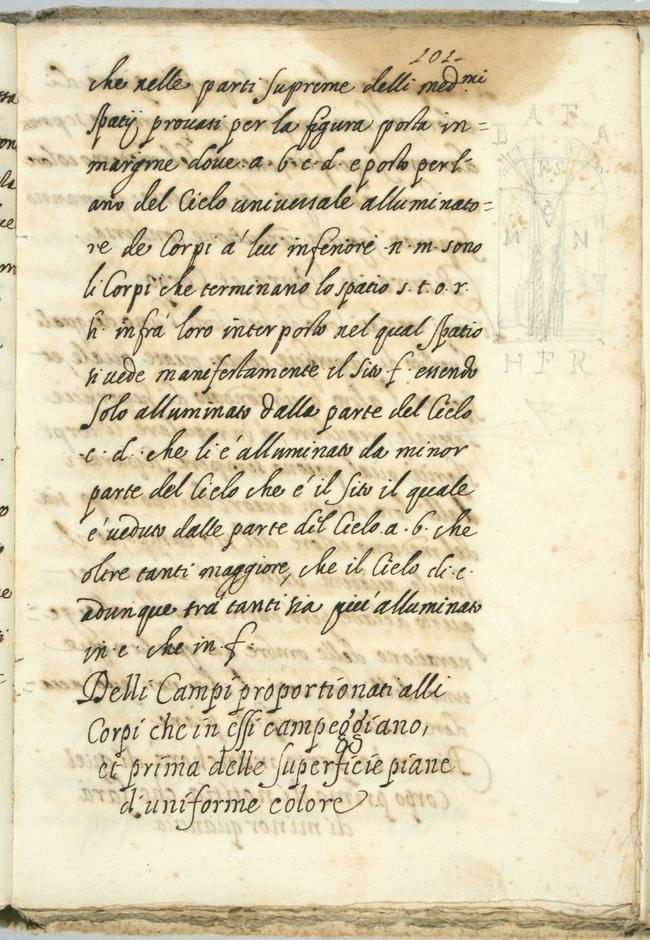 101
che nelle parti supreme delli med.mi
spatij provati per la figura posta in=
margine dove. a. b. c. d. e posto per l'
ano del Cielo universale alluminato=
re de Corpi á lui inferiore n. m. sono
li Corpi che terminano lo spatio s. t. o. r.
h. infrá loro interposto nel qual spatio
si vede manifestamente il sito f. essendo
solo alluminato dalla parte del Cielo
c. d. che li é alluminato da minor
parte del Cielo che é il sito il quale
é veduto dalle parte del Cielo. a. b. che
oltre tanti maggiore, che il Cielo d. c.
adunque trá tanti sia piú alluminato
in. e. che in. f.
Delli Campi proportionati alli
Corpi che in essi campeggiano,
et prima delle superficie piane
d'uniforme colore
A F A
M N
H F R